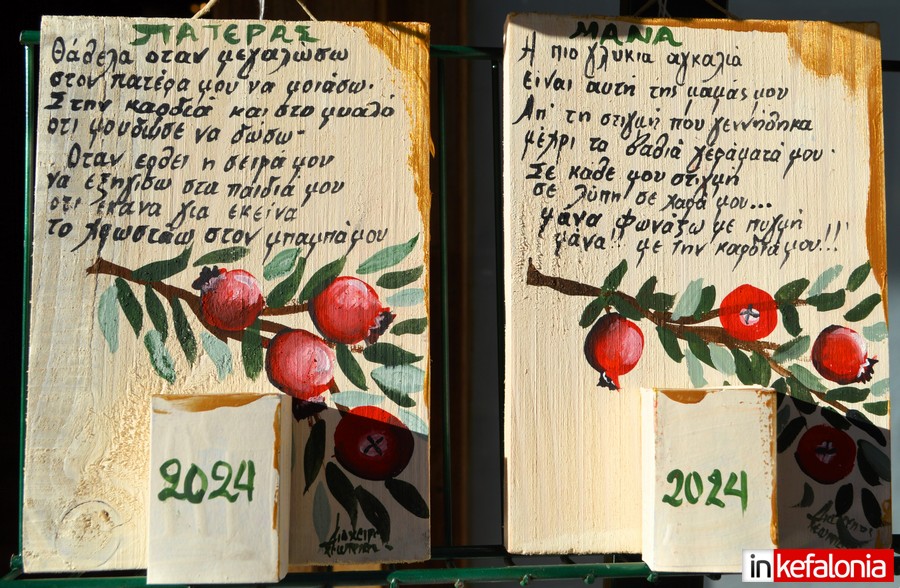 ΠΑΤΕΡΑΣ
Θάθελα όταν μεγαλώσω
στον πατέρα μου να μοιάσω.
Στην καρδιά και στο μυαλό
ότι μούδωσε να δώσω.
Όταν ερθει η σειρά μου
να εξηγίσω στα παιδιά μου
ότι έκανα για εκείνα
το χρωστάω στον μπαμπά μου
2024
ΜΑΝΑ
Η πιο γλυκιά αγκαλιά
είναι αυτή της μαμάς μου
Απ' τη στιγμή που γεννήθηκα
μέχρι τα βαθιά γεράματά μου.
Σε κάθε μου στιγμή
σε λύπη σε χαρά μου...
μάνα φωνάζω με πυγμή
μάνα!! με την καρδιά μου...!!
2024
inkefalonia